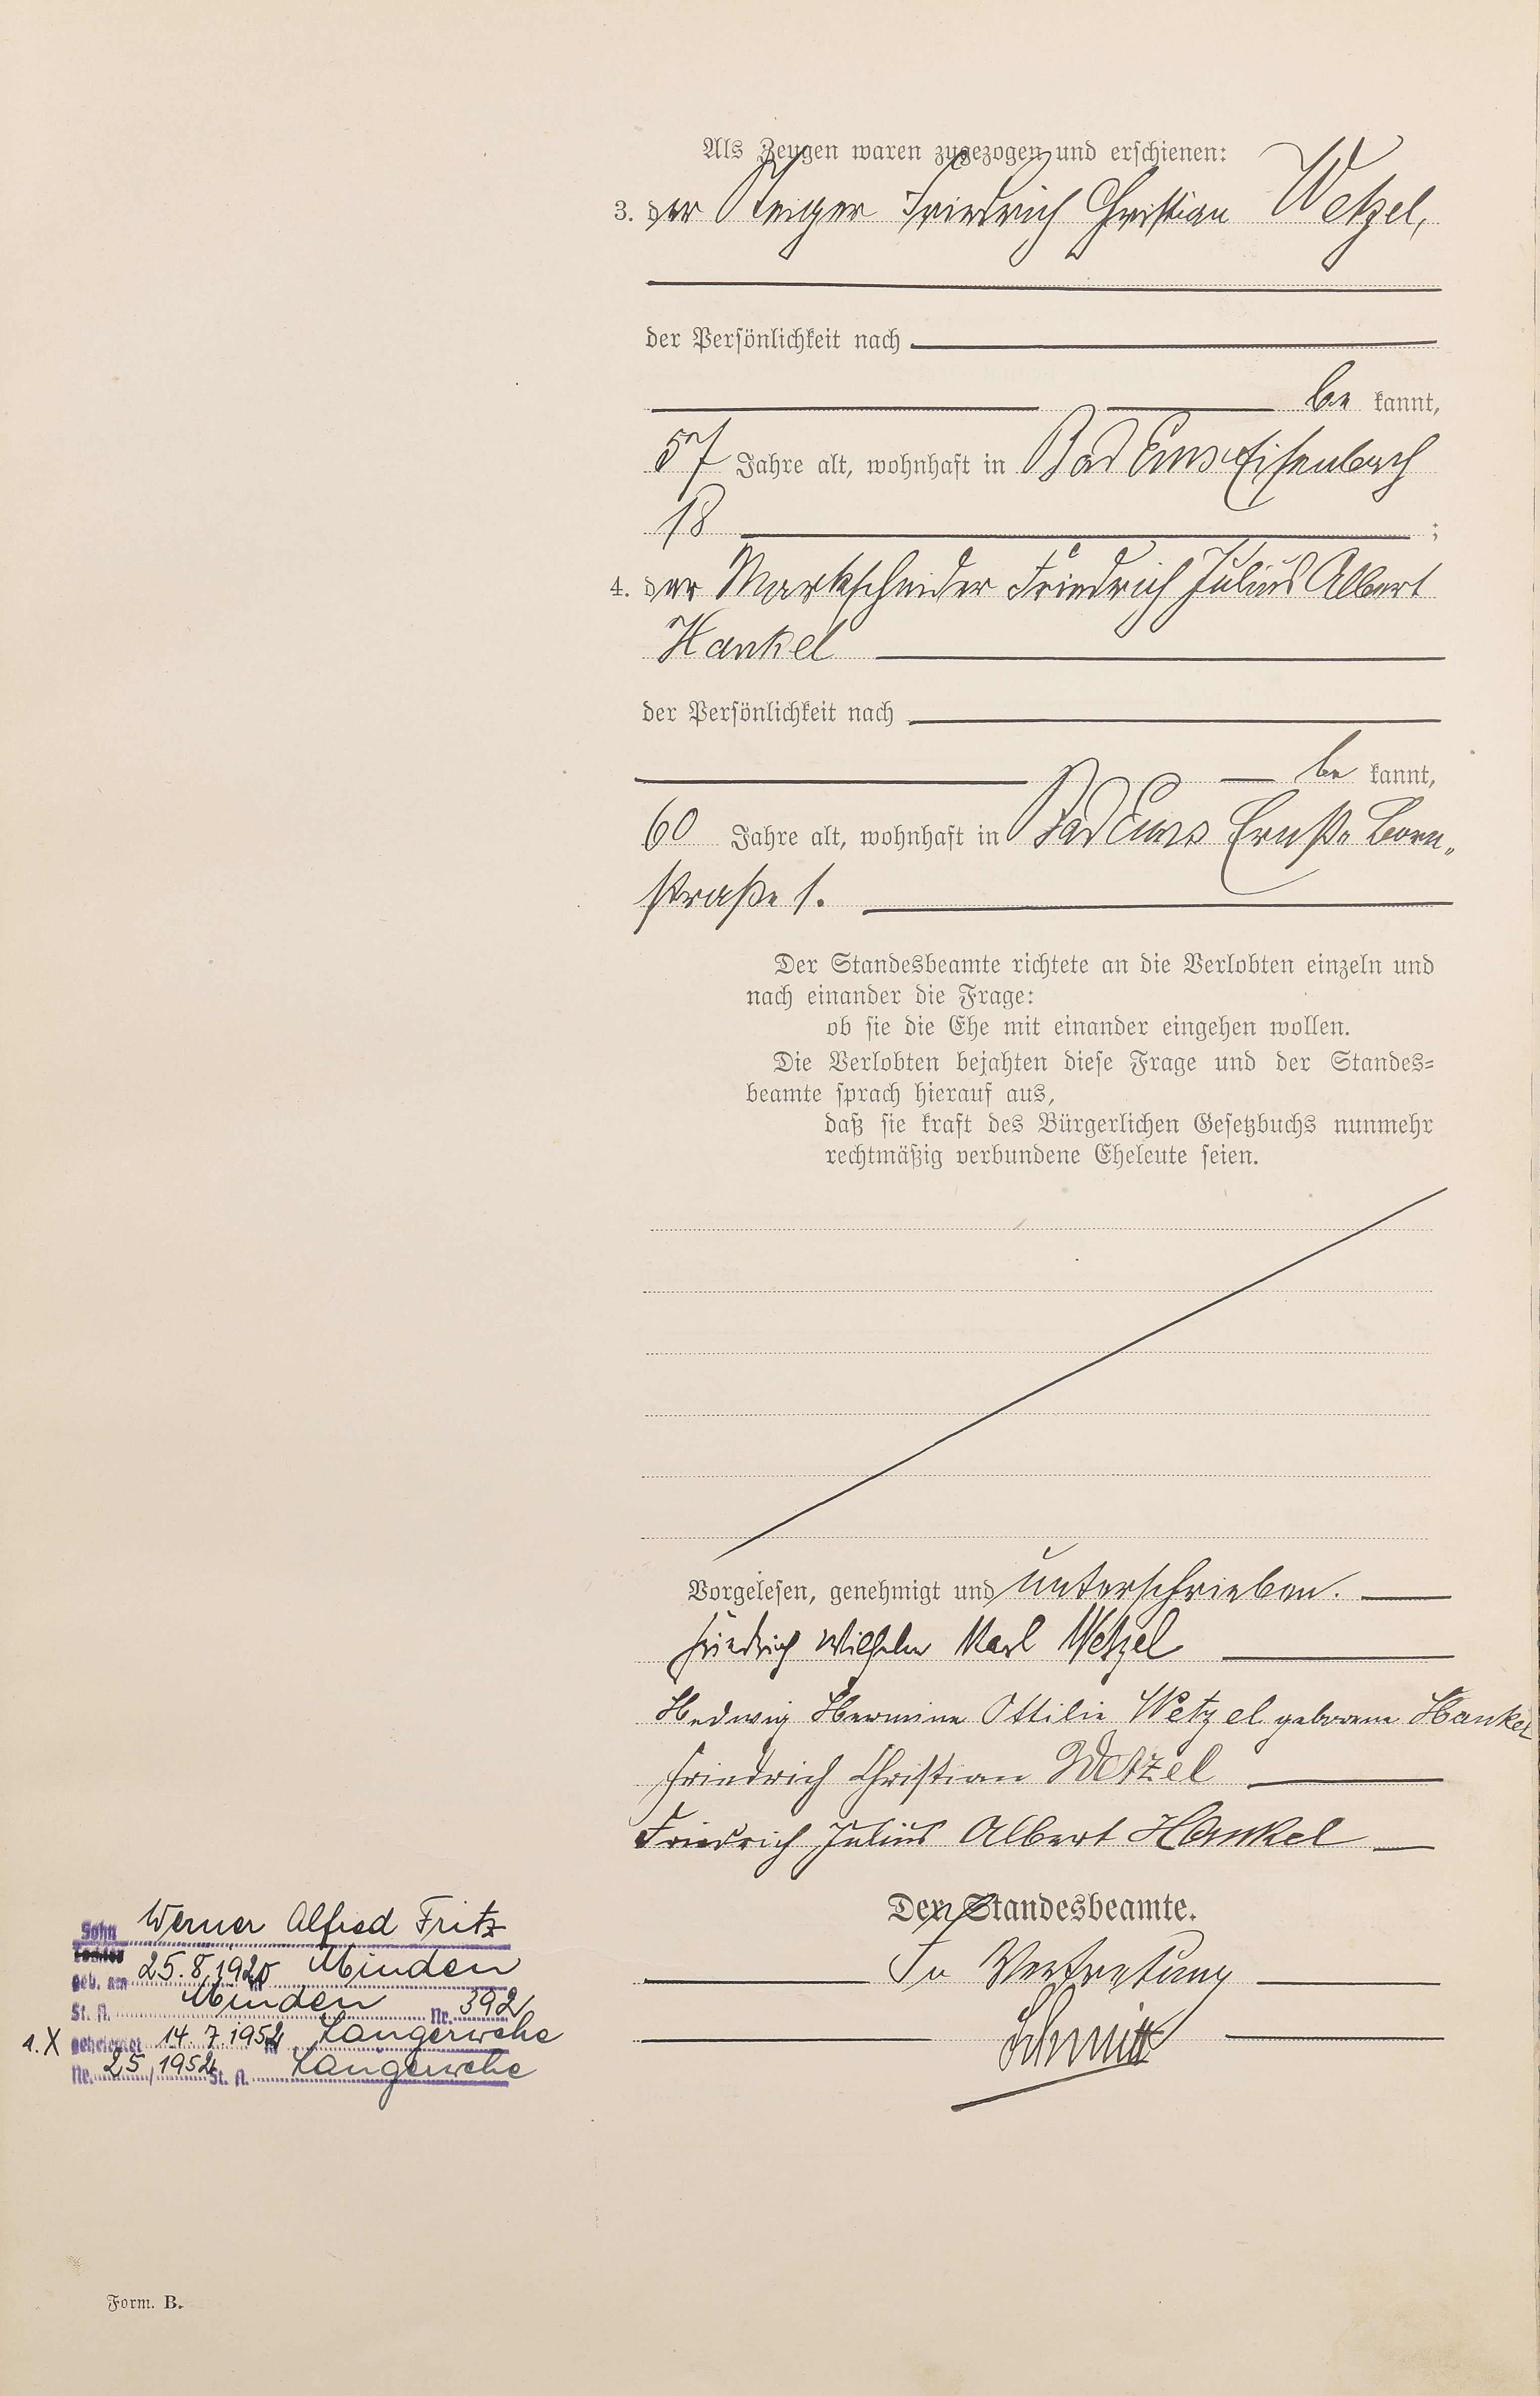 Als Zeugen waren zugezogen und erschienen:
3. der Steiger Friedrich Christian Wetzel,
der Persönlichkeit nach
be kannt,
57 Jahre alt, wohnhaft in Bad Ems Eisenbach
18 ;
4. der Markscheider Friedrich Julius Albert
Hankel
der Persönlichkeit nach
be kannt,
60 Jahre alt, wohnhaft in Bad Ems Ernst Born„
straße 1.
Der Standesbeamte richtete an die Verlobten einzeln und
nach einander die Frage:
ob sie die Ehe mit einander eingehen wollen.
Die Verlobten bejahten diese Frage und der Standes=
beamte sprach hierauf aus,
daß sie kraft des Bürgerlichen Gesetzbuchs nunmehr
rechtmäßig verbundene Eheleute seien.
Vorgelesen, genehmigt und unterschrieben.
Friedrich Wilhelm Karl Wetzel
Hedwig Hermine Ottilie Wetzel geborene Hankel
Friedrich Christian Wetzel
Friedrich Julius Albert Hankel
Der Standesbeamte.
In Vertretung
Schmitt
Sohn Werner Alfred Fritz
Tochter
geb. am 25.8.1920 in Minden
St. A. Minden Nr. 392
1. X geheiratet 14.7.1952 in Langerwehe
Nr. 25/1952 St. A. Langerwehe
Form. B.